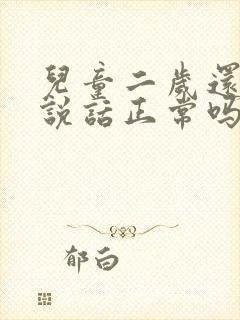 兒童二歲還
說話正常吗
郁白